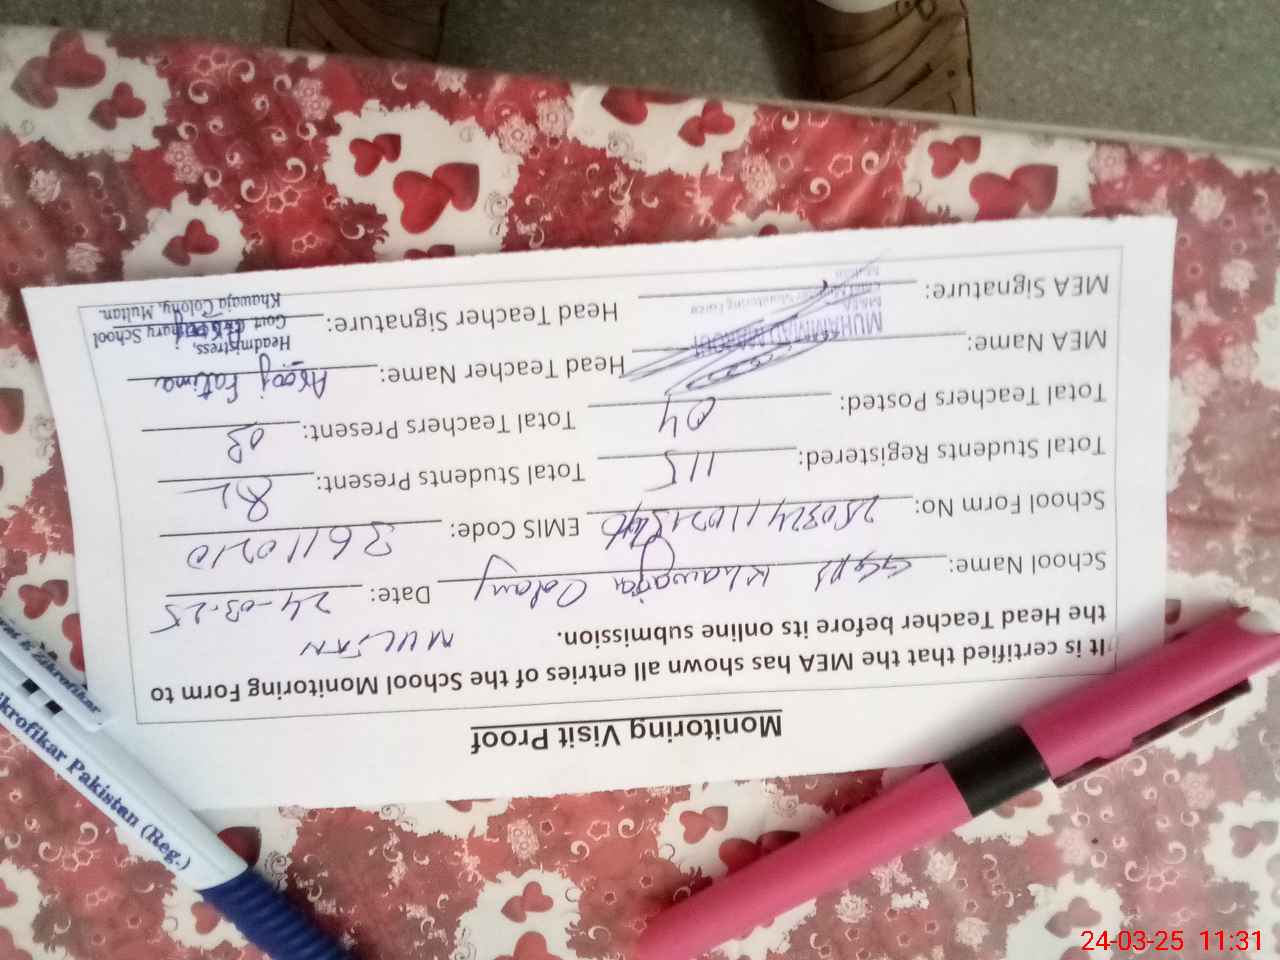 Monitoring Visit Proof
It is certified that the MEA has shown all entries of the School Monitoring Form to
the Head Teacher before its online submission.
MULTAN
School Name: GGPS Khawaja Colony Date: 24-03-25
School Form No: EMIS Code: 36110210
Total Students Registered: 115 Total Students Present: 82
Total Teachers Posted: 04 Total Teachers Present: 03
MEA Name: MUHAMMAD Head Teacher Name: Arooj Fatima
MEA Signature: Head Teacher Signature:
Headmistress,
Govt School
Khawaja Colony, Multan.
krofikar Pakistan (Reg.)
24-03-25 11:31